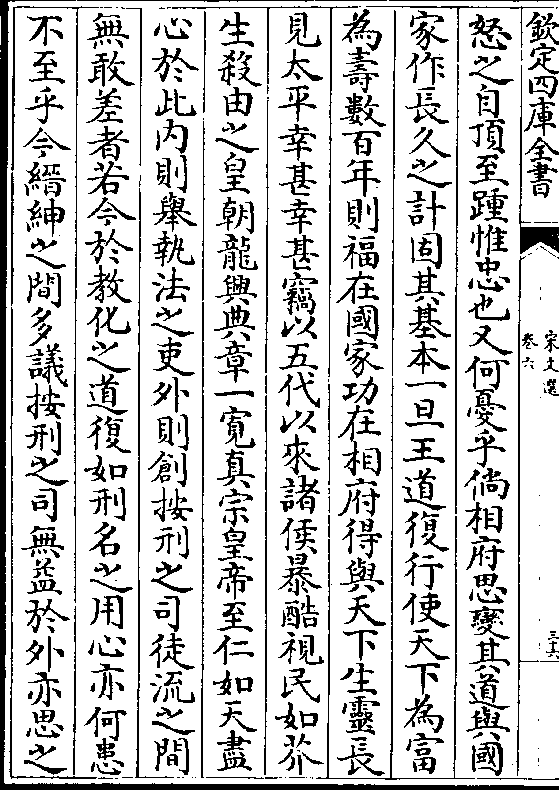 欽定四庫全書
宋文選
卷六
三六
怒之自頂至踵惟忠也又何憂乎倘相府思變其道與國
家作長久之計固其基本一旦王道復行使天下為富
為壽數百年則福在國家功在相府得與天下生靈長
見太平幸甚幸甚竊以五代以來諸侯暴酷視民如芥
生殺由之皇朝龍興典章一寛真宗皇帝至仁如天盡
心於此内則舉執法之吏外則創按刑之司徒流之間
無敢差者若今於教化之道復如刑名之用心亦何患
不至乎今縉紳之間多議按刑之司無益於外亦思之